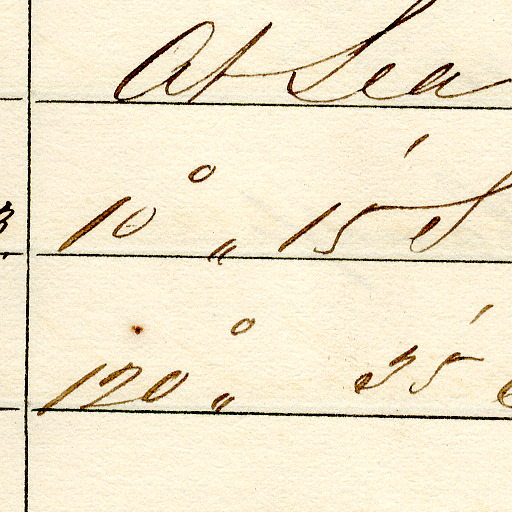 At Sea
10° „ 15′ S
120° „ 35′